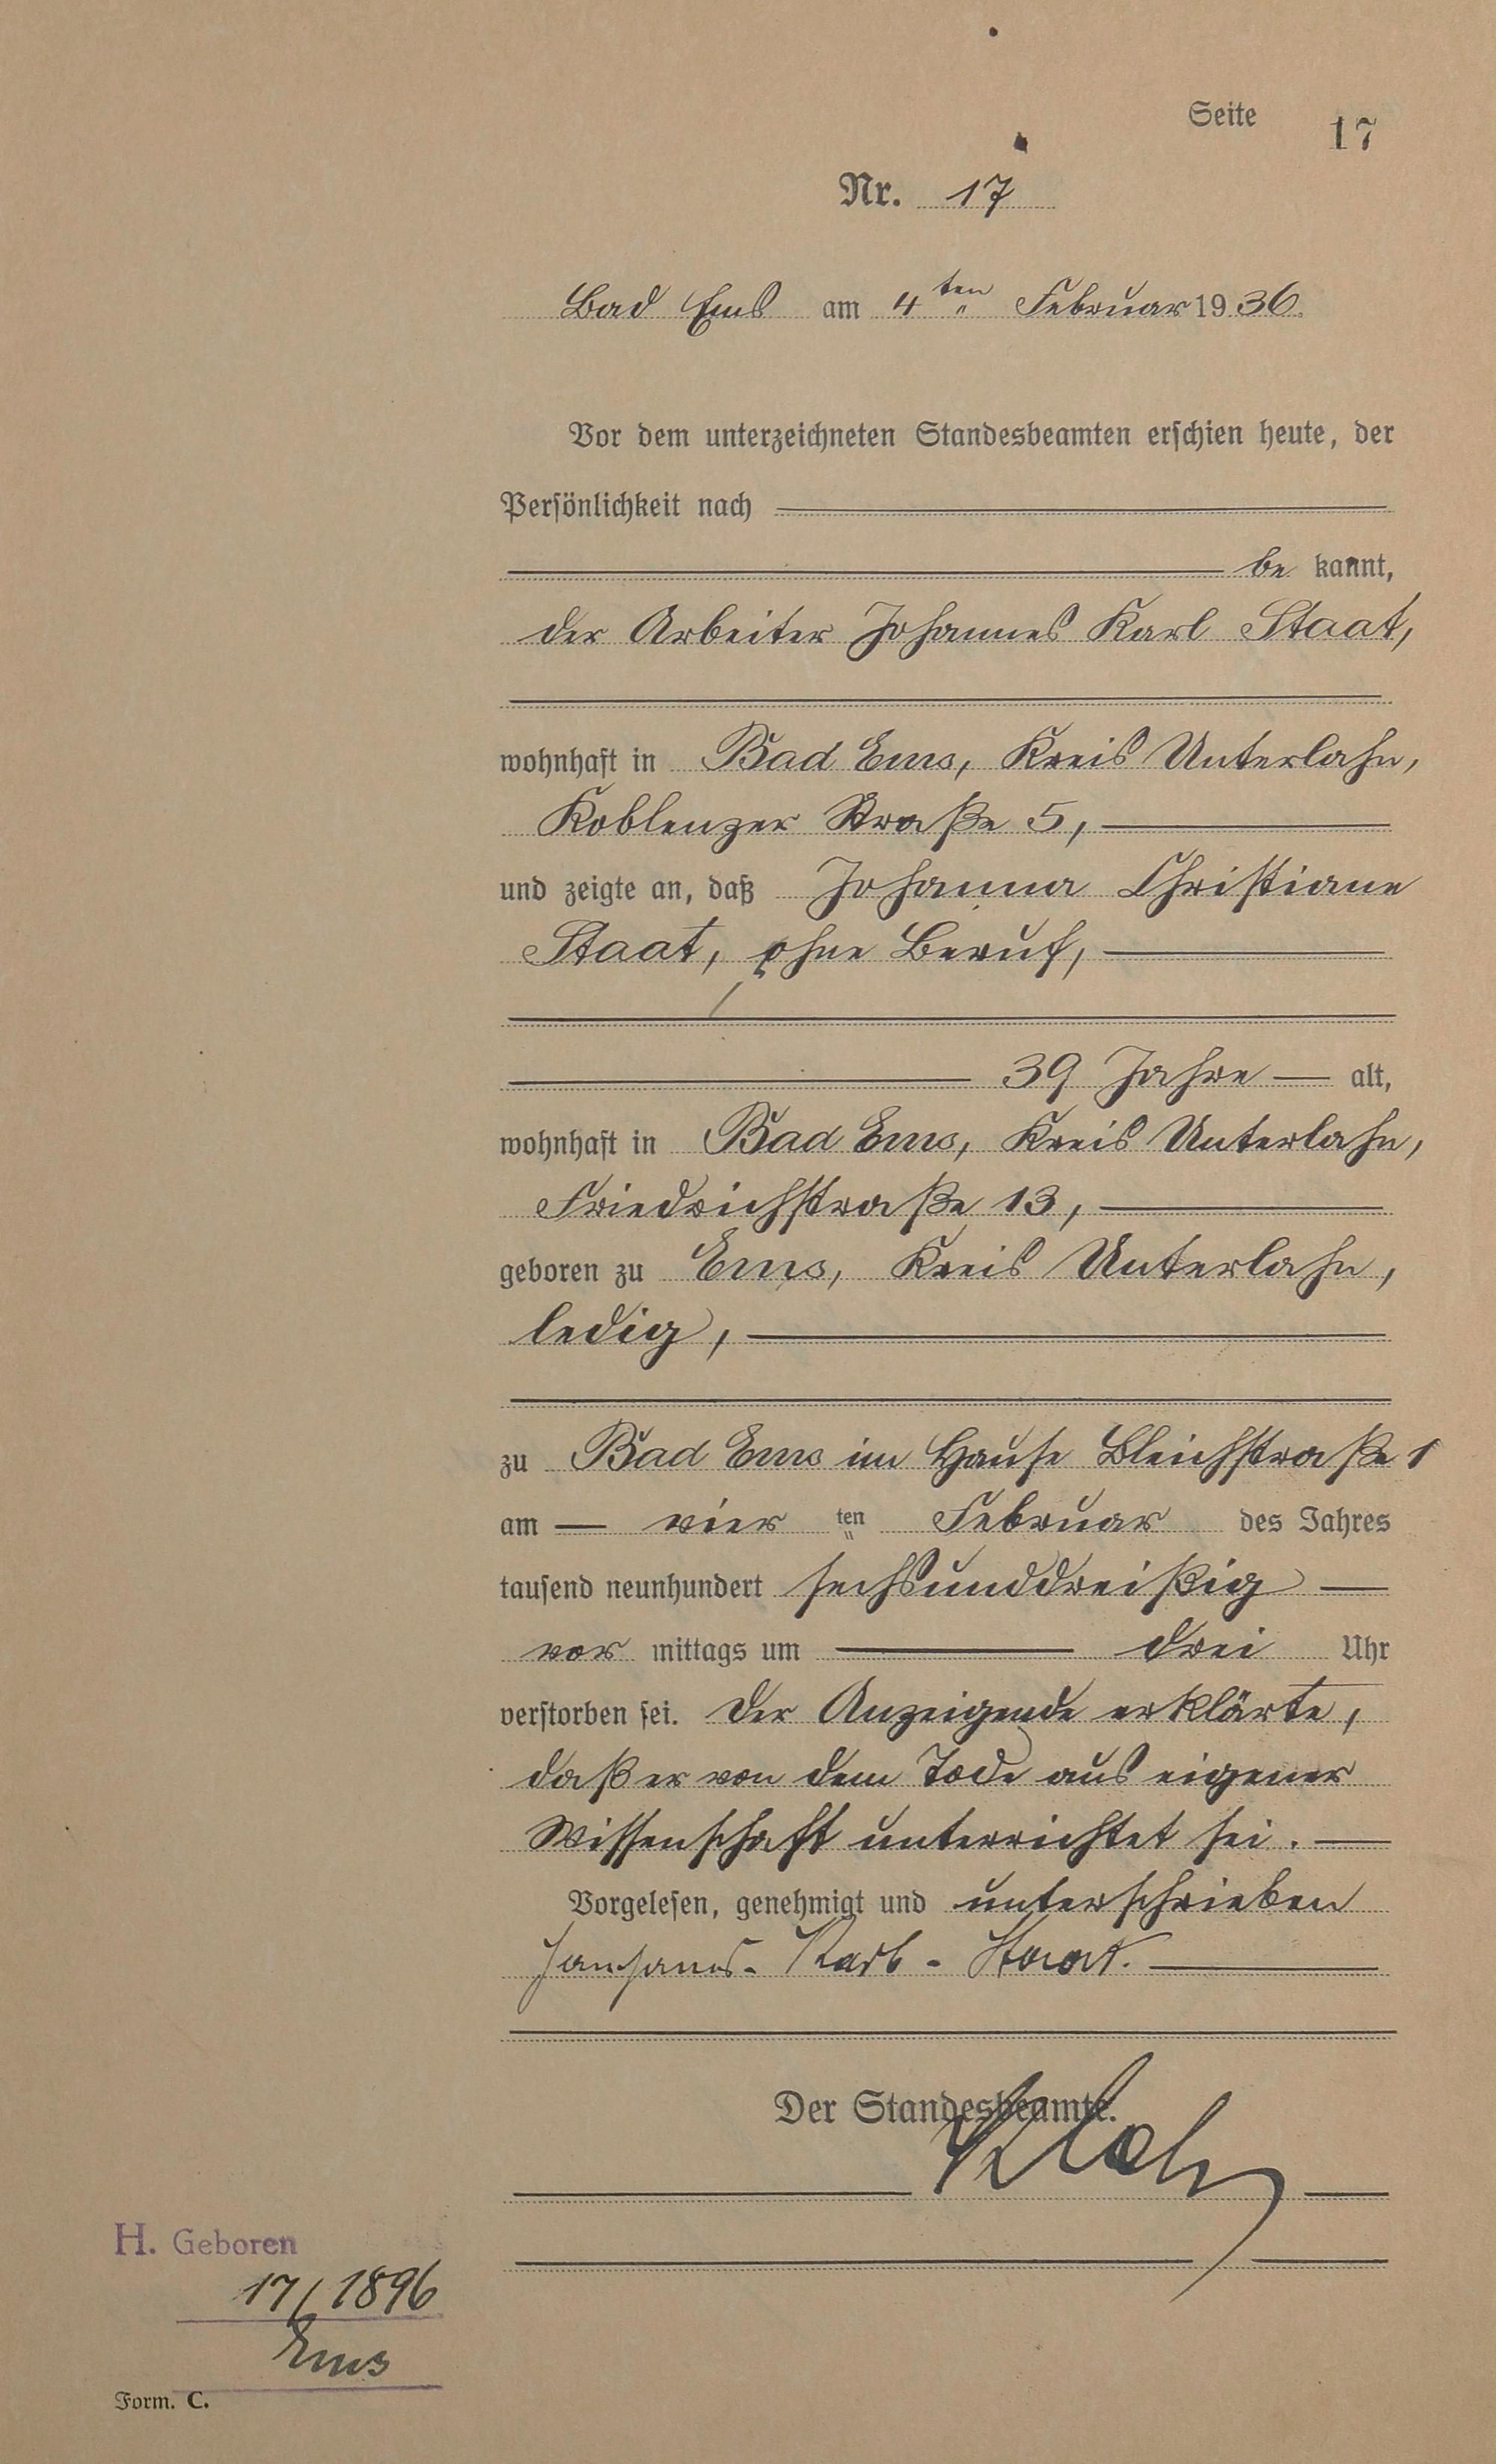 Seite 17
Nr. 17
Bad Ems am 4ten Februar 1936.
Vor dem unterzeichneten Standesbeamten erschien heute, der
Persönlichkeit nach
be kannt,
der Arbeiter Johannes Karl Staat,
wohnhaft in Bad Ems, Kreis Unterlahn,
Koblenzer Straße 5,
und zeigte an, daß Johanna Christiane
Staat, ohne Beruf,
39 Jahre alt,
wohnhaft in Bad Ems, Kreis Unterlahn,
Friedrichstraße 13,
geboren zu Ems, Kreis Unterlahn,
ledig,
zu Bad Ems im Hause Bleichstraße 1
am vier ten Februar des Jahres
tausend neunhundert sechsunddreißig
vor mittags um drei Uhr
verstorben sei. Der Anzeigende erklärte,
daß er von dem Tode aus eigener
Wissenschaft unterrichtet sei.
Vorgelesen, genehmigt und unterschrieben
Karl - Staat.
Der Standesbeamte.
H. Geboren
17/1896
Ems
Form. C.